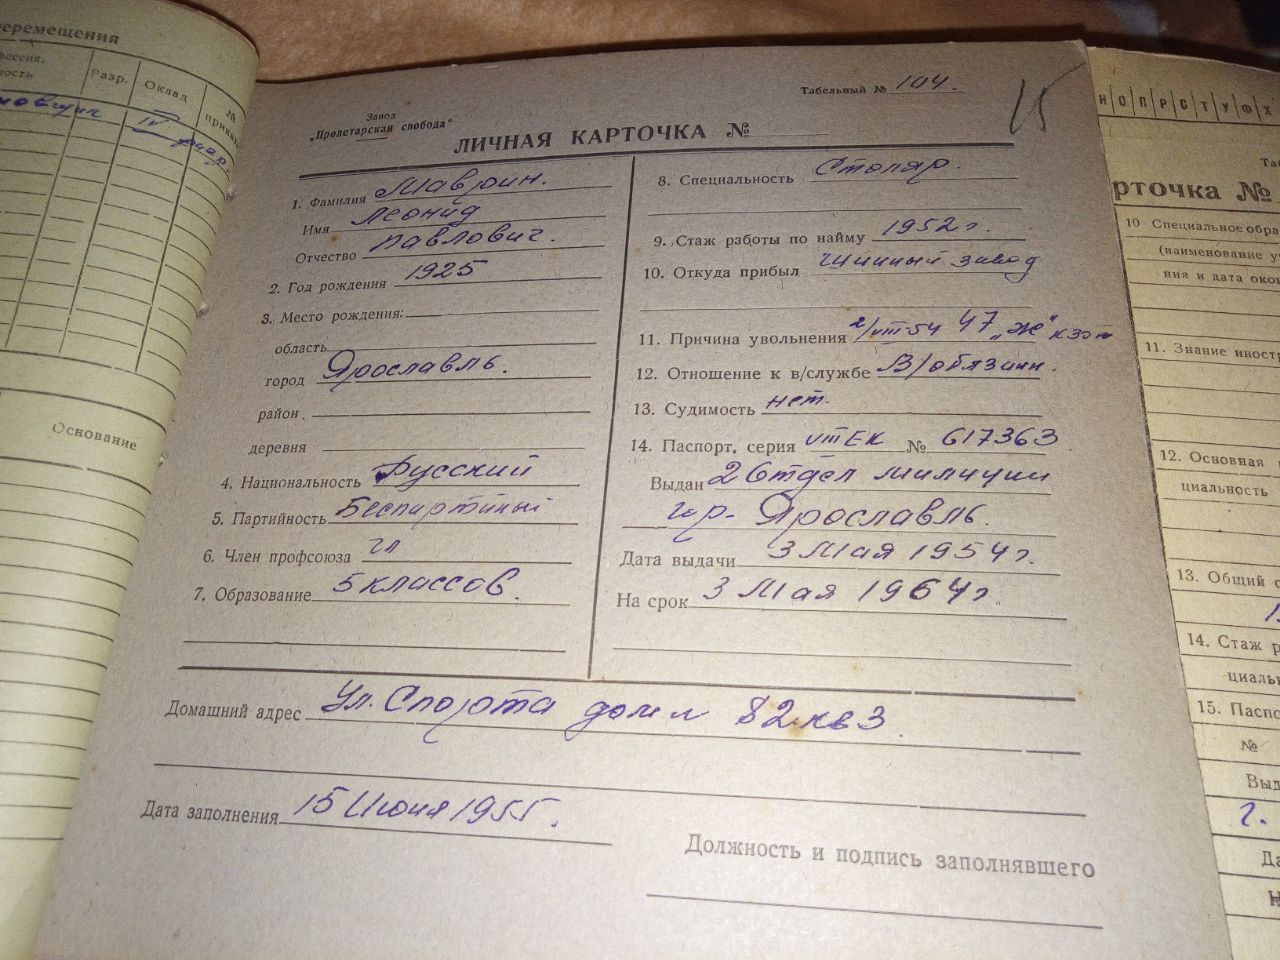 перемещения
Разр.
Оклад
№
Основание
Завод
„Пролетарская свобода"
Табельный № 104.
15
ЛИЧНАЯ КАРТОЧКА №
1. Фамилия Маврин.
Имя Леонид
Отчество Павлович.
2. Год рождения 1925
3. Место рождения:
область
город Ярославль.
район
деревня
4. Национальность Русский
5. Партийность Беспартийный
6. Член профсоюза чл
7. Образование 5 классов.
8. Специальность Столяр.
9. Стаж работы по найму 1952 г.
10. Откуда прибыл Шинный завод
11. Причина увольнения 2/VIII-54 47 „Ж" КЗОТ
12. Отношение к в/службе В/обязанн.
13. Судимость нет.
14. Паспорт, серия № 617363
Выдан 2 Отдел милиции
гор. Ярославль.
Дата выдачи 3 Мая 1954 г.
На срок 3 Мая 1964 г.
Домашний адрес Ул. Спорта дом 82 кв 3.
Дата заполнения 15 Июня 1955 г.
Должность и подпись заполнявшего
Н О П Р С Т У Ф Х
рточка №
10 Специальное обра
(наименование у
ния и дата око
11. Знание иност
12. Основная
циальность
13. Общий с
14. Стаж р
циаль
15. Паспо
№
Выд
г.
Да
Н